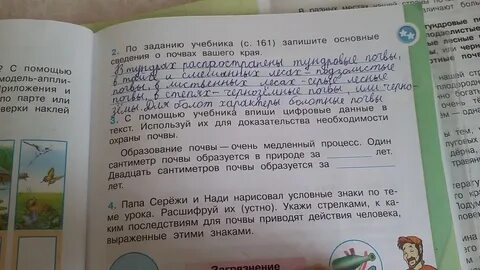 2. По заданию учебника (с. 161) запишите основные
сведения о почвах вашего края.
В тундрах распространены тундровые почвы,
в тайге и смешанных лесах - подзолистые
почвы, в лиственных лесах - серые лесные
почвы, в степях - чернозёмные почвы, или черно-
зёмы. Для болот характерны болотные почвы
3. С помощью учебника впиши цифровые данные в
текст. Используй их для доказательства необходимости
охраны почвы.
Образование почвы — очень медленный процесс. Один
сантиметр почвы образуется в природе за лет.
Двадцать сантиметров почвы образуется за
лет.
4. Папа Серёжи и Нади нарисовал условные знаки по те-
ме урока. Расшифруй их (устно). Укажи стрелками, к ка-
ким последствиям для почвы приводят действия человека,
выраженные этими знаками.
Загрязнение
С помощью
модель-аппли-
Приложения и
по парте или
верки наклей